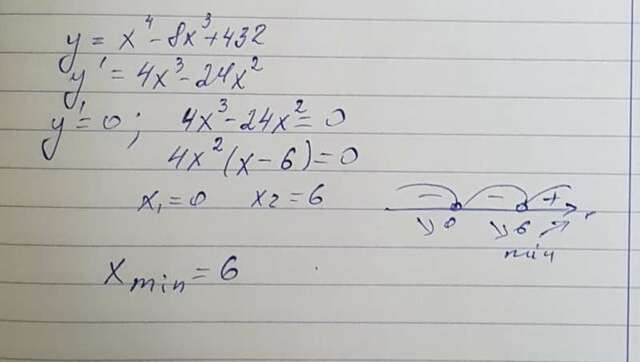 y = x⁴ - 8x³ + 432
y' = 4x³ - 24x²
y' = 0 ; 4x³ - 24x² = 0
4x² (x - 6) = 0
x₁ = 0 x₂ = 6
- - +
0 6
min
x min = 6